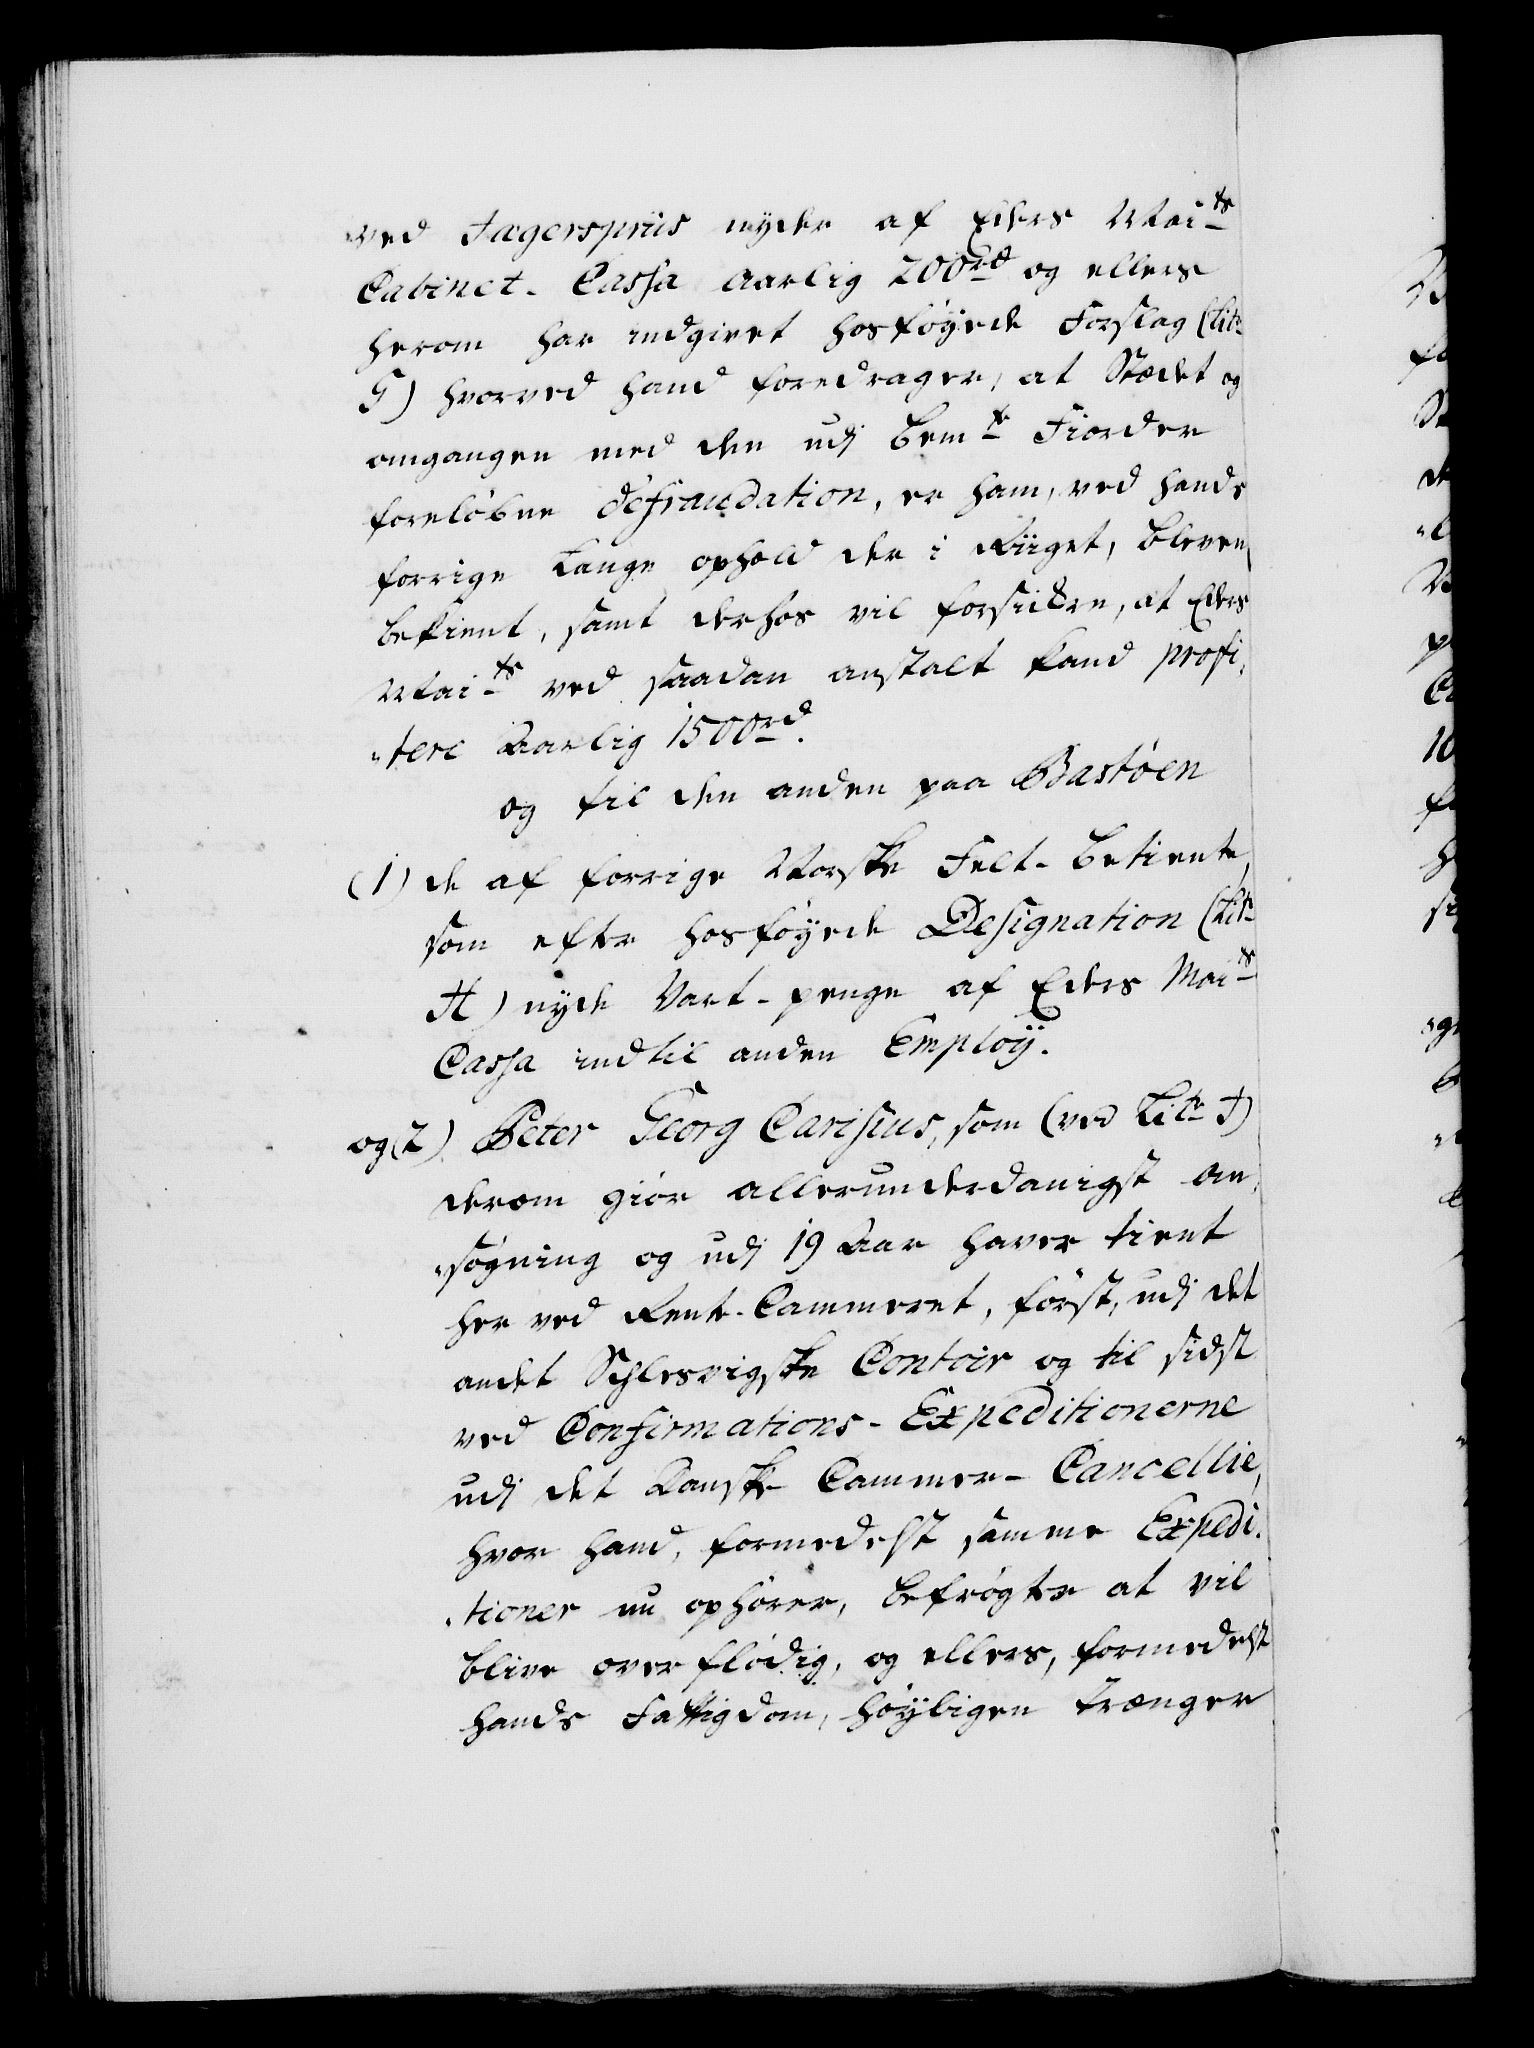 ved Jægerspriis nyder af Eders Mai<sup>ts</sup>
Cabinet-Cassa aarlig 200rd og ellers
herom har indgivet hosføyede Forslag (Lit:
G) hvorved hand foredrager, at Stædet og
omgangen med den udj bem<sup>te</sup> Fiorder
foreløbne defraudation, er ham, ved hands
forrige Lange ophold der i Riiget, bleven
bekient, samt derhos vil forsickre, at Eders
Mai<sup>ts</sup> ved saadan anstalt kand profi-
"tere Aarlig 1500rd.
og til den anden paa Bastøen
(1) de af forrige Norske Felt-betiente,
som efter hosføyede Designation (Lit:
H) nyde Vart-penge af Eders Mai<sup>ts</sup>
Cassa indtil anden Employ.
og (2) Peter Georg Carisius, som (ved Lit: J)
derom giør allerunderdanigst an-
"søgning og udj 19 Aar haver tient
her ved Rente-Cammeret, først, udj det
andet Schlesvigske Contoir og til sidst
ved Confirmations-Expeditionerne
udj det Danske Cammer-Cancellie,
hvor hand, formedelst samme Expedi-
"tioner nu ophører, befrøgter at vil
blive overflødig, og ellers, formedelst
hands Fattigdom, høyligen trænger